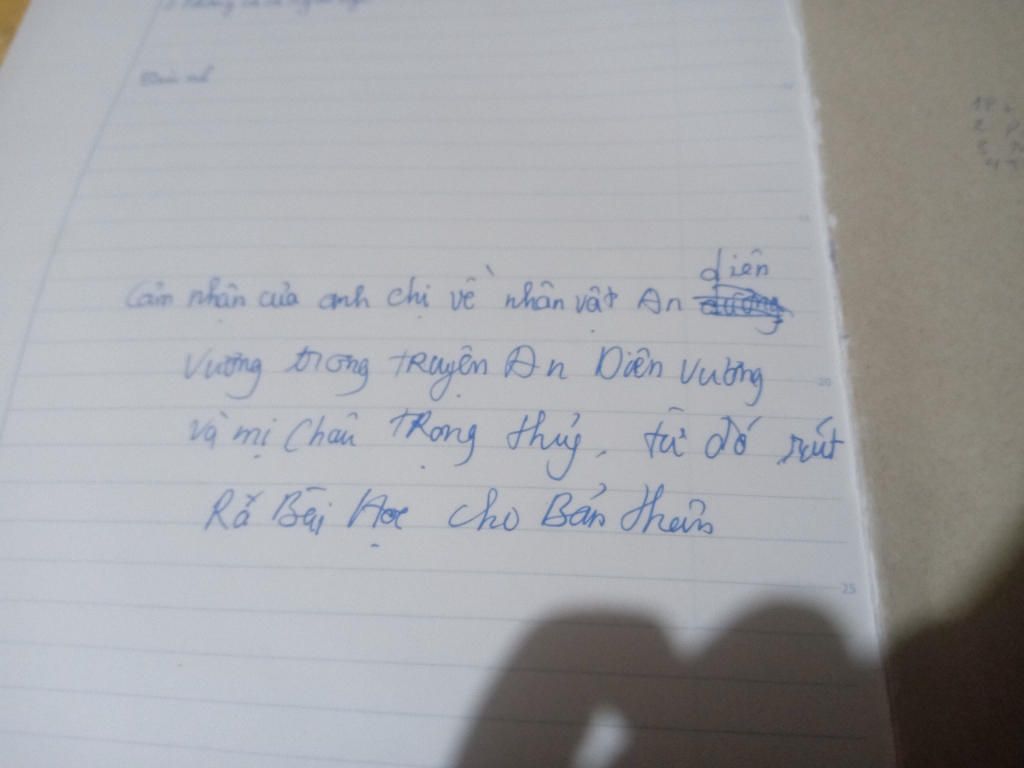 Cảm nhận của anh chị về nhân vật An diên
Vương trong truyện An Diên Vương
và mị Châu Trọng thủy, từ đó rút
Ra Bài Học cho Bản thân
20
25